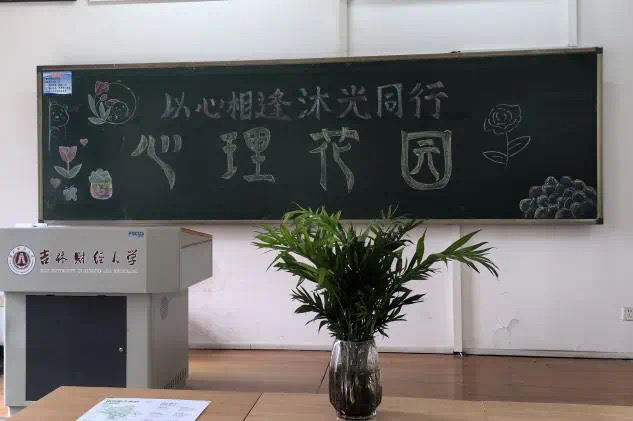 以心相逢沐光同行
心理花园
FOCUS
吉林财经大学